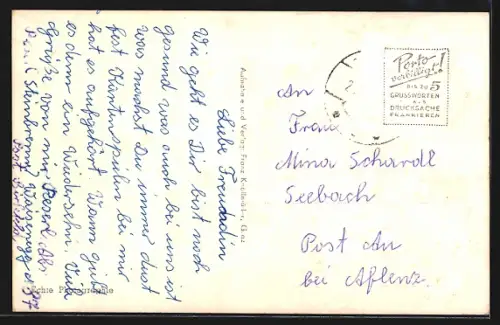 Liebe Freundin
Wie geht es Dir bist noch
gesund was auch bei uns ist
was machst Du immer dust
fest Kartenspielen bei mir
hat es aufgehört. Wann gibt
es denn ein Wiedersehn. Viele
Grüße von mir
Aufnahme und Verlag: Franz
Echte Photographie
Porto
verbilligt!
BIS ZU 5
GRUSSWORTEN
ALS
DRUCKSACHE
FRANKIEREN
An
Frau
Mina Schardl
Seebach
Post Au
bei Aflenz